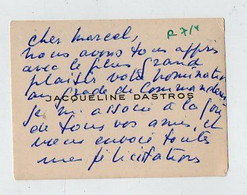 R 7/4
Cher Marcel,
nous avons tous appris
avec le plus grand
plaisir votre nomination
au Grade de Commandeur
JACQUELINE DASTROS
je m'associe à la joie
de tous vos amis, et
vous envoie toutes
mes félicitations